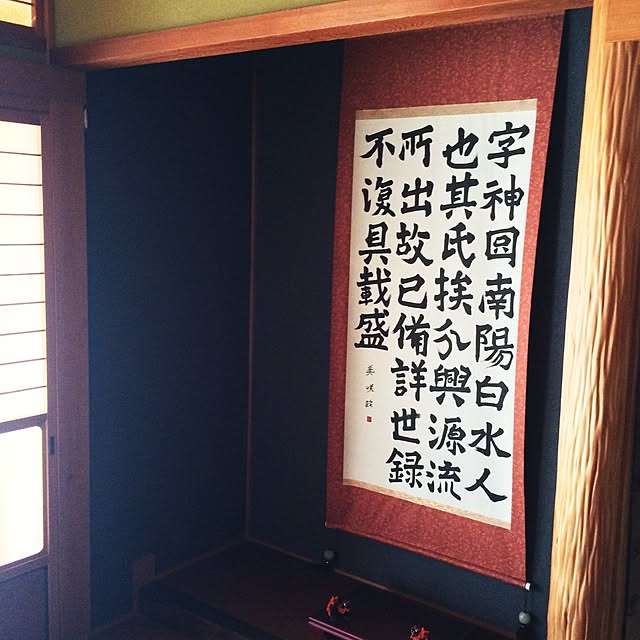 字神囧南陽白水人
也其氏族分興源流
所出故已備詳世録
不復具載盛